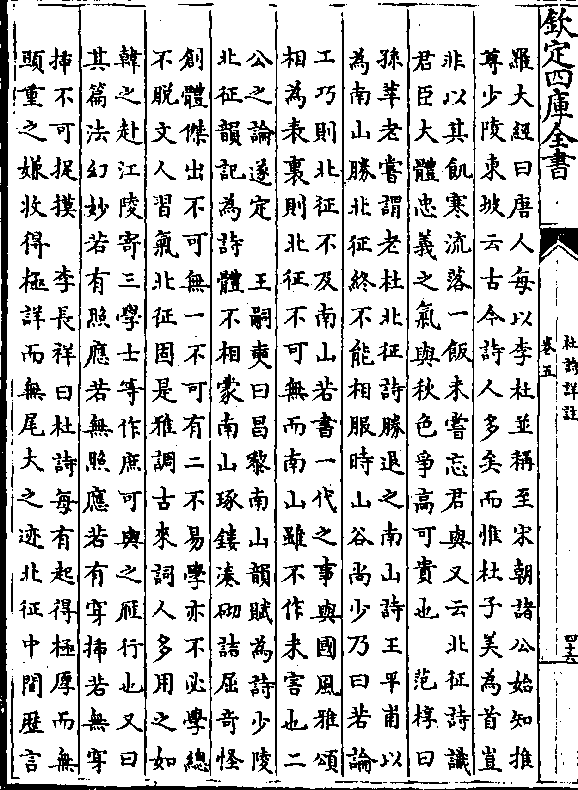 欽定四庫全書
杜詩詳註
卷五
四十六
羅大經曰唐人每以李杜並稱至宋朝諸公始知推
尊少陵東坡云古今詩人多矣而惟杜子美為首豈
非以其飢寒流落一飯未嘗忘君與又云北征詩識
君臣大體忠義之氣與秋色爭高可貴也　范梈曰
孫莘老嘗謂老杜北征詩勝退之南山詩王平甫以
為南山勝北征終不能相服時山谷尚少乃曰若論
工巧則北征不及南山若書一代之事與國風雅頌
相為表裏則北征不可無而南山雖不作未害也二
公之論遂定　王嗣奭曰昌黎南山韻賦為詩少陵
北征韻記為詩體不相蒙南山琢鏤湊砌詰屈奇怪
創體傑出不可無一不可有二不易學亦不必學總
不脫文人習氣北征固是雅調古來詞人多用之如
韓之赴江陵寄三學士等作庶可與之雁行也又曰
其篇法幻妙若有照應若無照應若有穿插若無穿
插不可捉摸　李長祥曰杜詩每有起得極厚而無
頭重之嫌收得極詳而無尾大之迹北征中間歷言